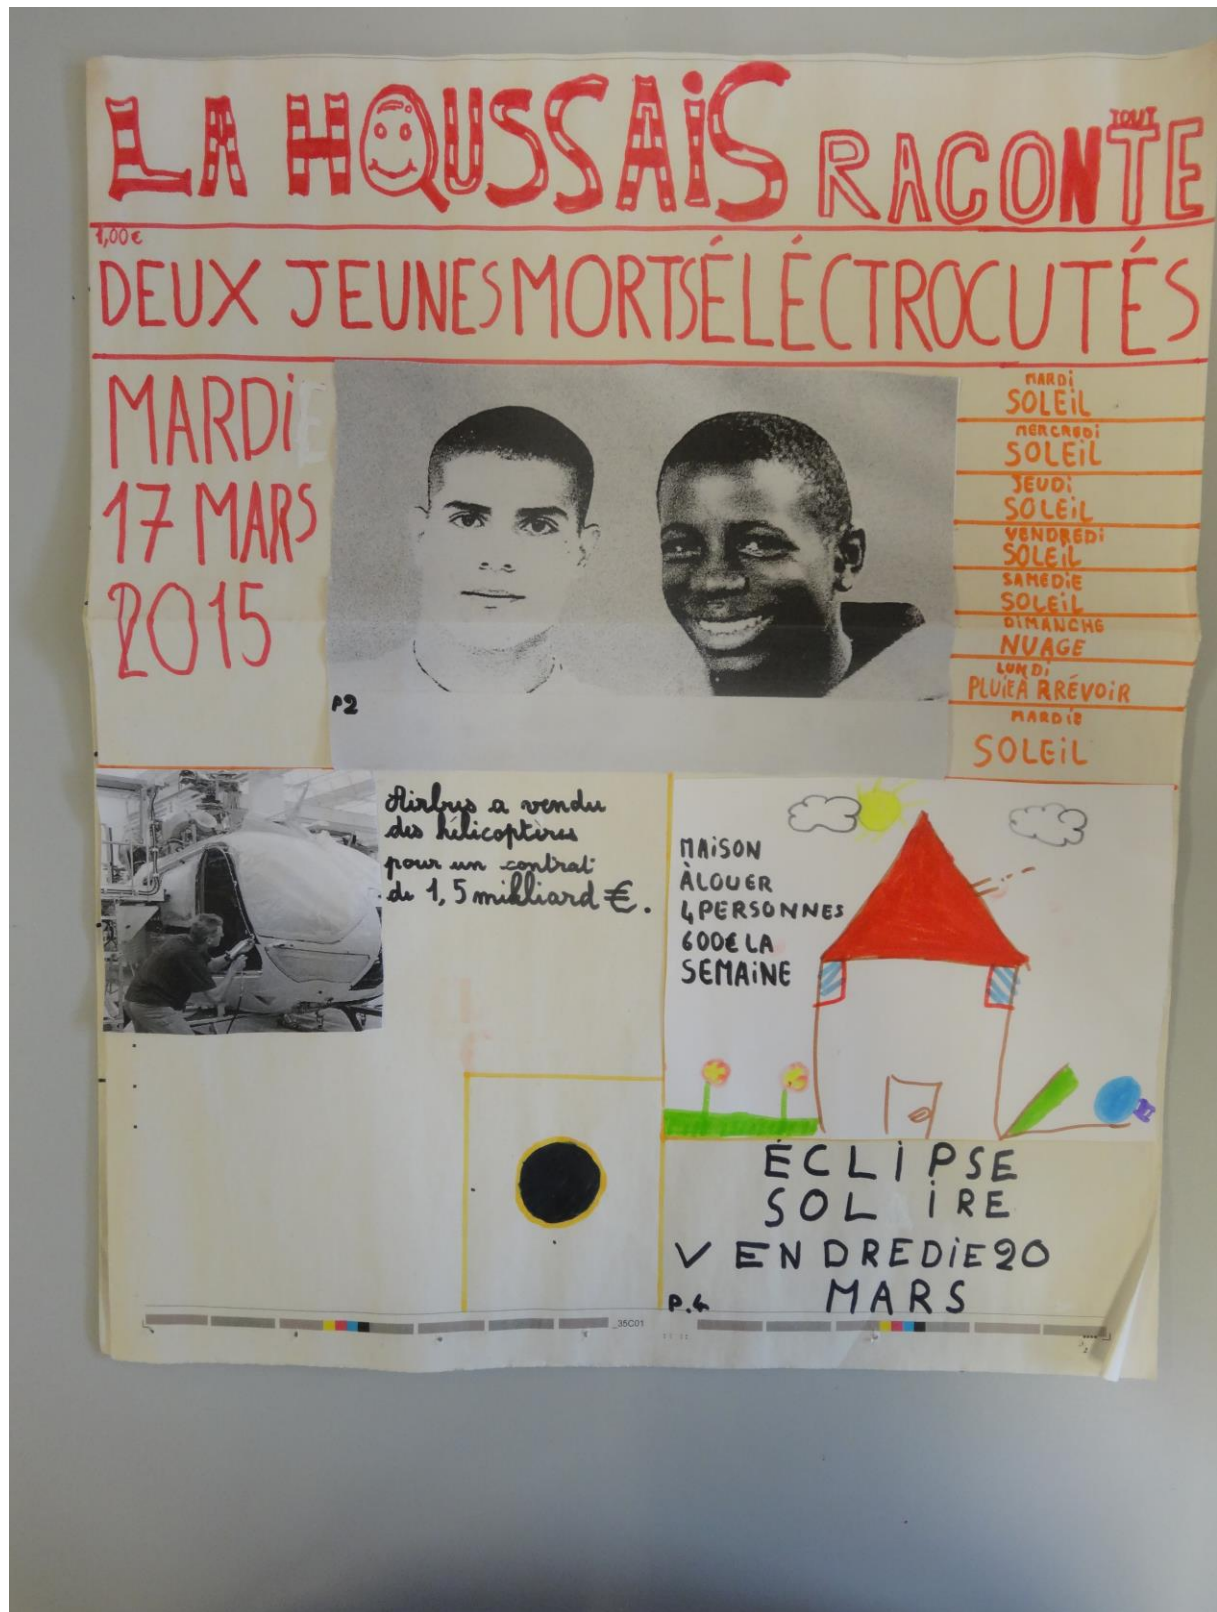 LA HOUSSAIS RACONTE
TOUT
1,00€
DEUX JEUNES MORTS ÉLÉCTROCUTÉS
MARDi
17 MARS
2015
P2
MARDi
SOLEiL
MERCREDi
SOLEiL
JEUDi
SOLEiL
VENDREDi
SOLEiL
SAMEDiE
SOLEiL
DIMANCHE
NUAGE
LUNDi
PLUiE À RRÉVOiR
MARDiE
SOLEiL
Airbus a vendu
des hélicoptères
pour un contrat
de 1,5 milliard €.
MAiSON
À LOUER
4 PERSONNES
600€ LA
SEMAiNE
ÉCLiPSE
SOL iRE
VENDREDiE 20
MARS
P.4
_35C01